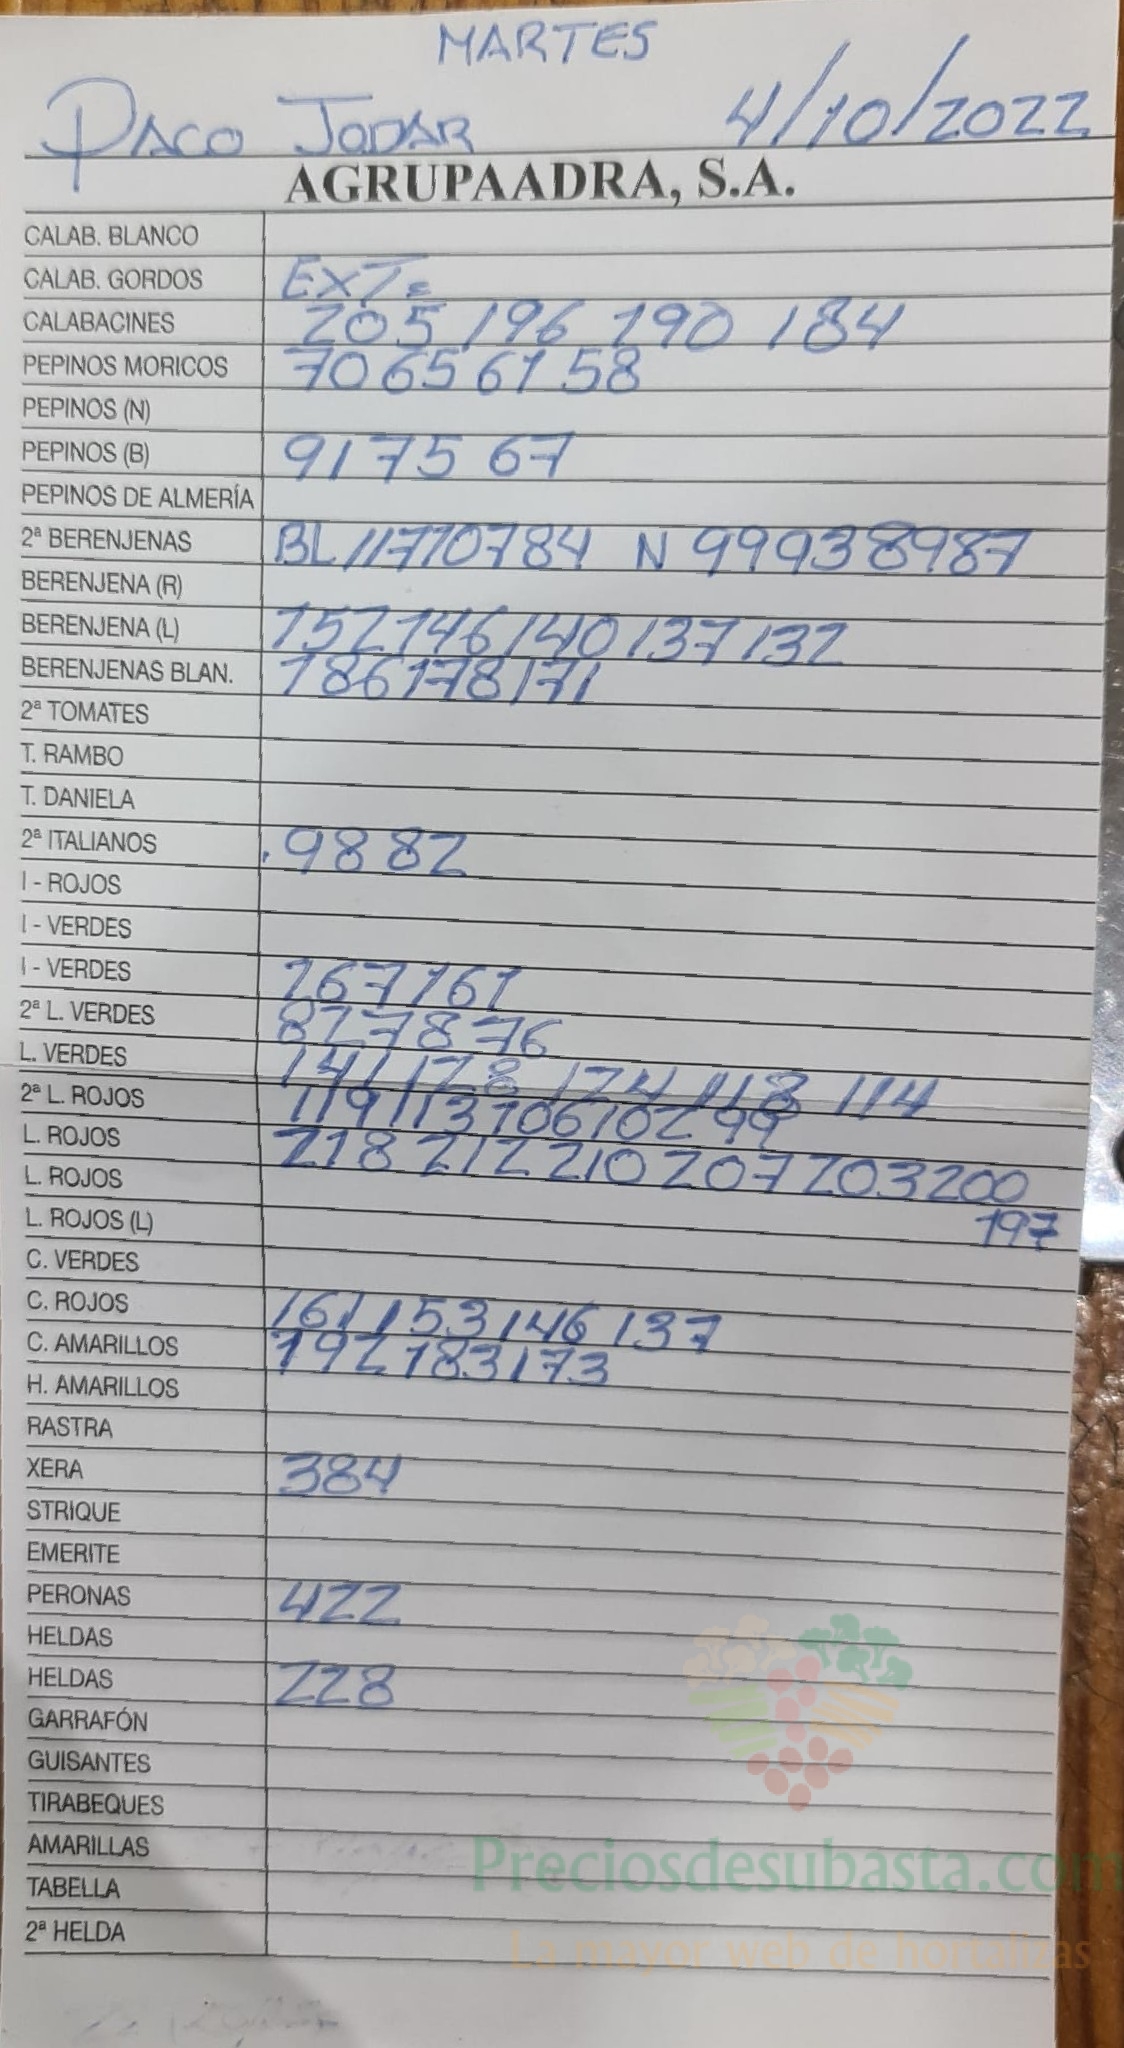 MARTES
PACO JODAR 4/10/2022
AGRUPAADRA, S.A.
CALAB. BLANCO
CALAB. GORDOS EXT=
CALABACINES 205 196 190 184
PEPINOS MORICOS 70 65 61 58
PEPINOS (N)
PEPINOS (B) 91 75 67
PEPINOS DE ALMERÍA
2ª BERENJENAS BL 117 107 84 N 99 93 89 87
BERENJENA (R)
BERENJENA (L) 152 146 140 137 132
BERENJENAS BLAN. 186 178 171
2ª TOMATES
T. RAMBO
T. DANIELA
2ª ITALIANOS 98 82
I - ROJOS
I - VERDES
I - VERDES 167 161
2ª L. VERDES 82 78 76
L. VERDES 141 128 124 118 114
2ª L. ROJOS 119 113 106 102 99
L. ROJOS 218 212 210 207 203 200
L. ROJOS 197
L. ROJOS (L)
C. VERDES
C. ROJOS 161 153 146 137
C. AMARILLOS 192 183 173
H. AMARILLOS
RASTRA
XERA 384
STRIQUE
EMERITE
PERONAS 422
HELDAS
HELDAS 228
GARRAFÓN
GUISANTES
TIRABEQUES
AMARILLAS
TABELLA
2ª HELDA
Preciosdesubasta.com
La mayor web de hortalizas